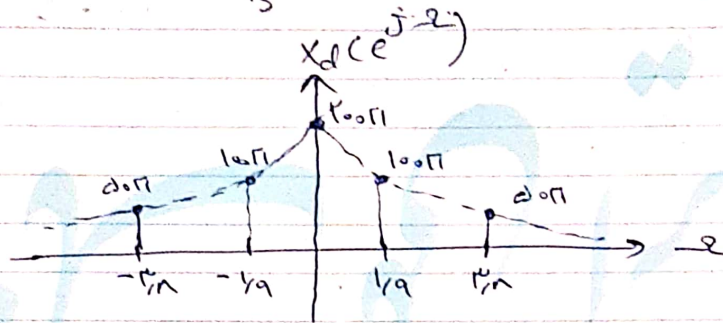 X_d(e^{jΩ})
۲۰۰π
۱۰۰π ۱۰۰π
۵۰π ۵۰π
-۳,۸ -۱,۹ ۱,۹ ۳,۸ Ω